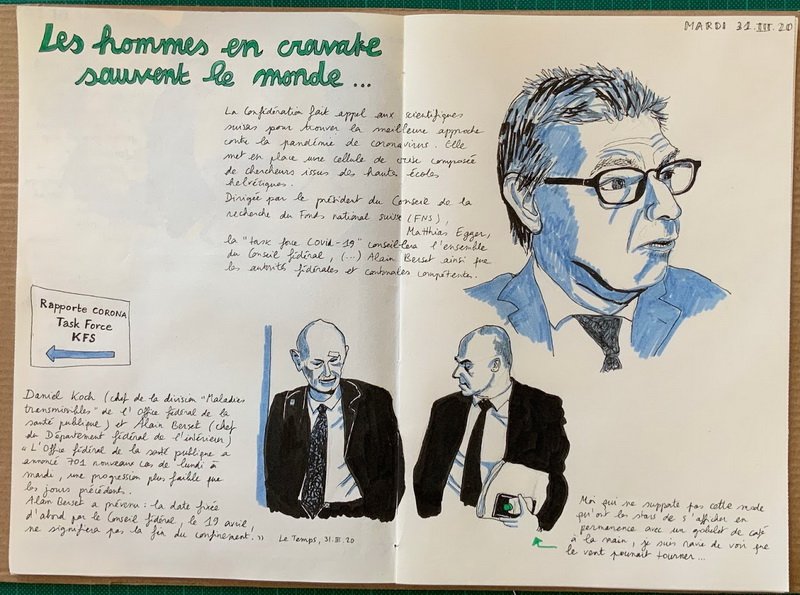 MARDI 31.III.20
Les hommes en cravate
sauvent le monde...
La Confédération fait appel aux scientifiques
suisses pour trouver la meilleure approche
contre la pandémie de coronavirus. Elle
met en place une cellule de crise composée
de chercheurs issus des hautes écoles
helvétiques.
Dirigée par le président du Conseil de la
recherche du Fonds national suisse (FNS),
Matthias Egger,
la "task force Covid-19" conseillera l'ensemble
du Conseil fédéral, (...) Alain Berset ainsi que
les autorités fédérales et cantonales compétentes.
Rapporte CORONA
Task Force
KFS
Daniel Koch (chef de la division "Maladies
transmissibles" de l'Office fédéral de la
santé publique) et Alain Berset (chef
du Département fédéral de l'intérieur)
« L'Office fédéral de la santé publique a
annoncé 701 nouveaux cas de lundi à
mardi, une progression plus faible que
les jours précédents.
Alain Berset a prévenu : la date fixée
d'abord par le Conseil fédéral, le 19 avril,
ne signifiera pas la fin du confinement! »
Le Temps, 31.III.20
Moi qui ne supporte pas cette mode
qu'ont les stars de s'afficher en
permanence avec un gobelet de café
à la main, je suis ravie de voir que
le vent pourrait tourner...